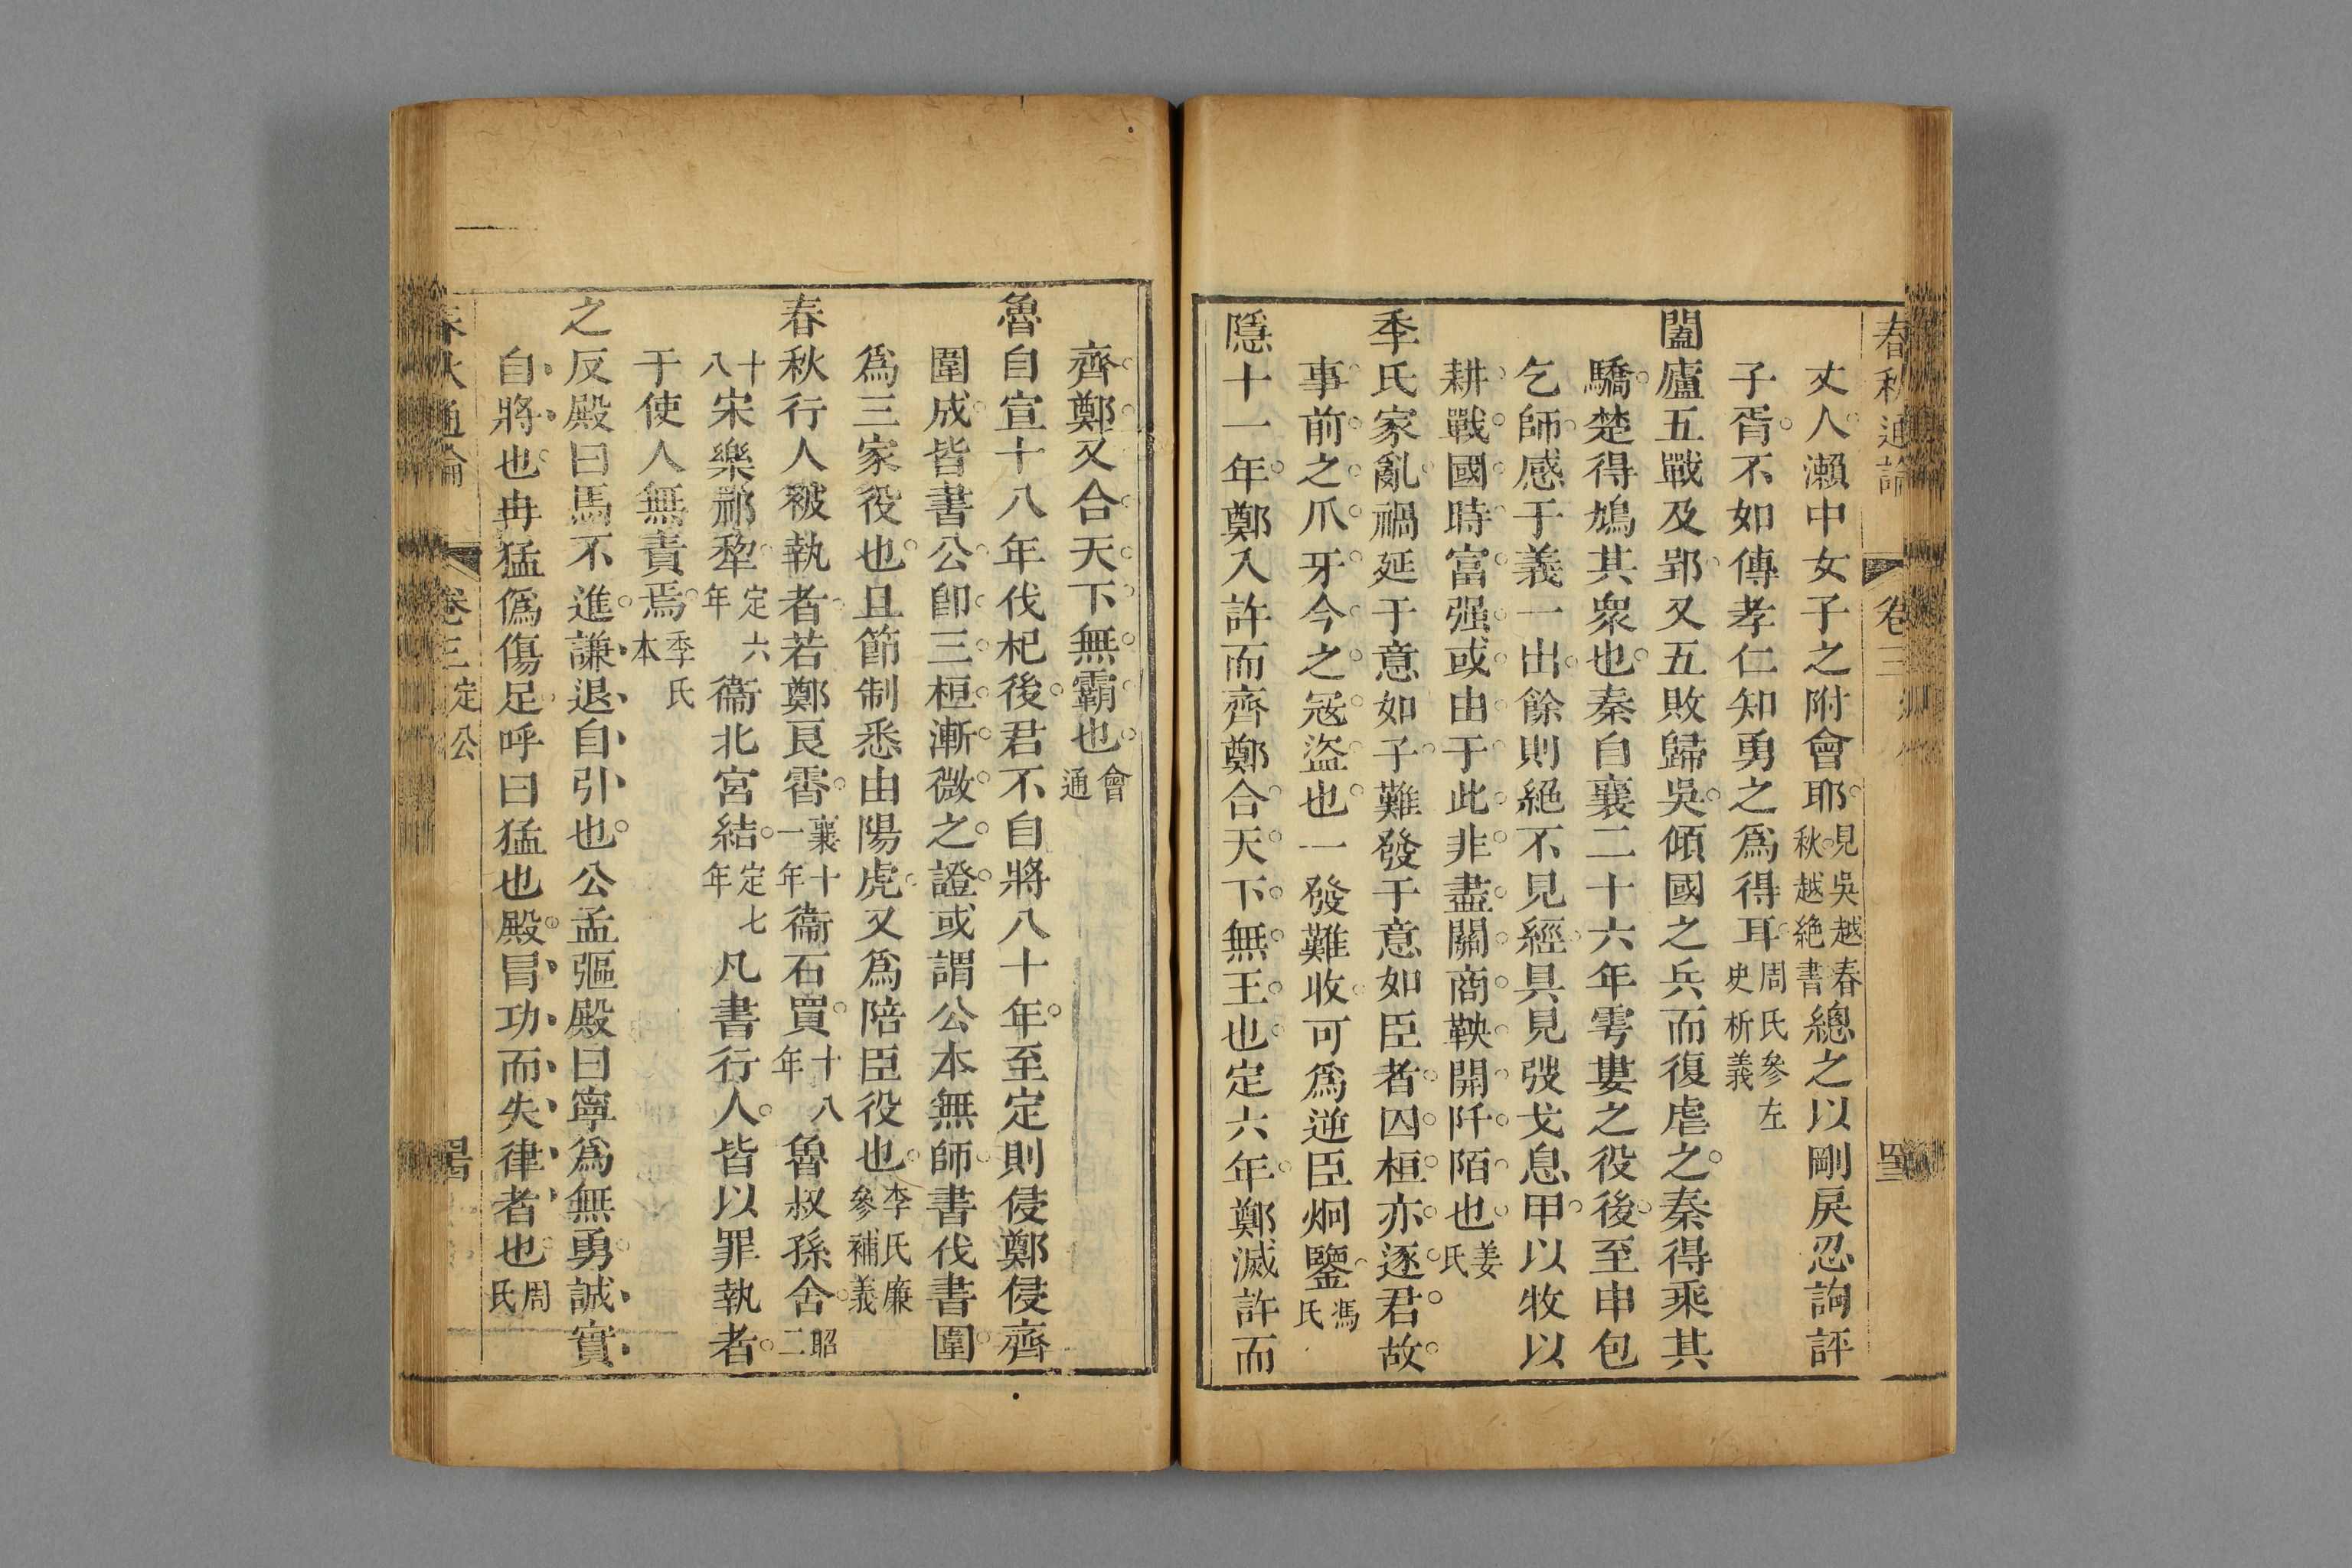 春秋通論 卷三
丈人瀨中女子之附會耶見吳越春秋越絶書總之以剛戾忍詢評
子胥不如傳孝仁知勇之爲得耳周氏參左史析義
闔廬五戰及郢又五敗歸吳傾國之兵而復虐之秦得乘其
驕楚得鳩其衆也秦自襄二十六年雩婁之役後至申包
乞師感于義一出餘則絕不見經具見弢戈息甲以牧以
耕戰國時富强或由于此非盡關商鞅開阡陌也姜氏
季氏家亂禍延于意如子難發于意如臣者囚桓亦逐君故
事前之爪牙今之冦盜也一發難收可爲逆臣炯鑒馮氏
隱十一年鄭入許而齊鄭合天下無王也定六年鄭滅許而
齊鄭又合天下無霸也會通
魯自宣十八年伐杞後君不自將八十年至定則侵鄭侵齊
圍成皆書公卽三桓漸微之證或謂公本無師書伐書圍
爲三家役也且節制悉由陽虎又爲陪臣役也李氏廉參補義
春秋行人被執者若鄭良霄襄十一年衞石買十八年魯叔孫舍昭二
十八宋樂祁犂定六年衞北宮結定七年凡書行人皆以罪執者
于使人無責焉季氏本
之反殿曰馬不進謙退自引也公孟彄殿曰寧爲無勇誠實
自將也冉猛僞傷足呼曰猛也殿冒功而失律者也周氏
春秋通論 卷三 定公